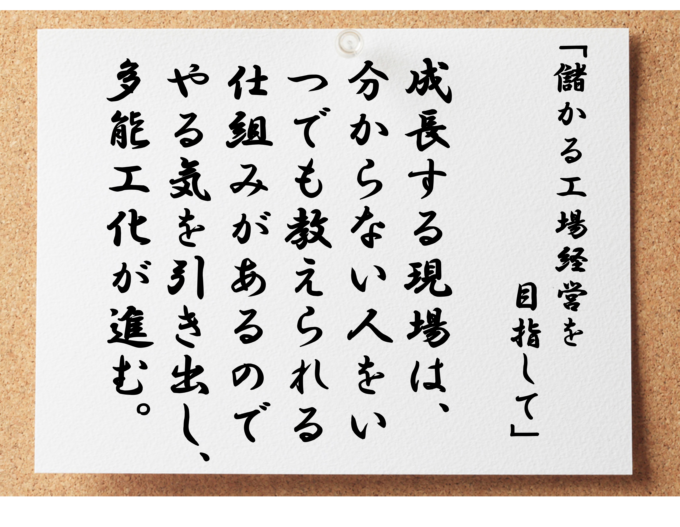 「儲かる工場経営を
目指して」
成長する現場は、
分からない人をい
つでも教えられる
仕組みがあるので
やる気を引き出し、
多能工化が進む。